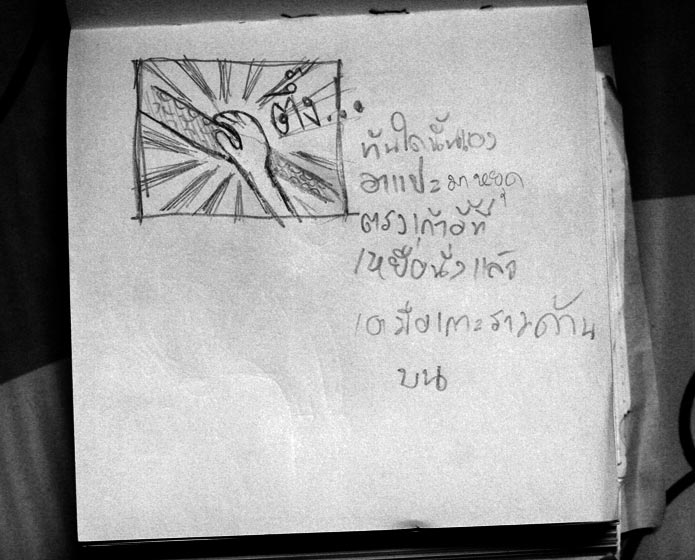 ตึ๊ง...
ทันใดนั้นเอง
อาแปะมาหยุด
ตรงเก้าอี้ที่
เหยื่อนั่งแล้ว
เอามือเกาะราวด้าน
บน